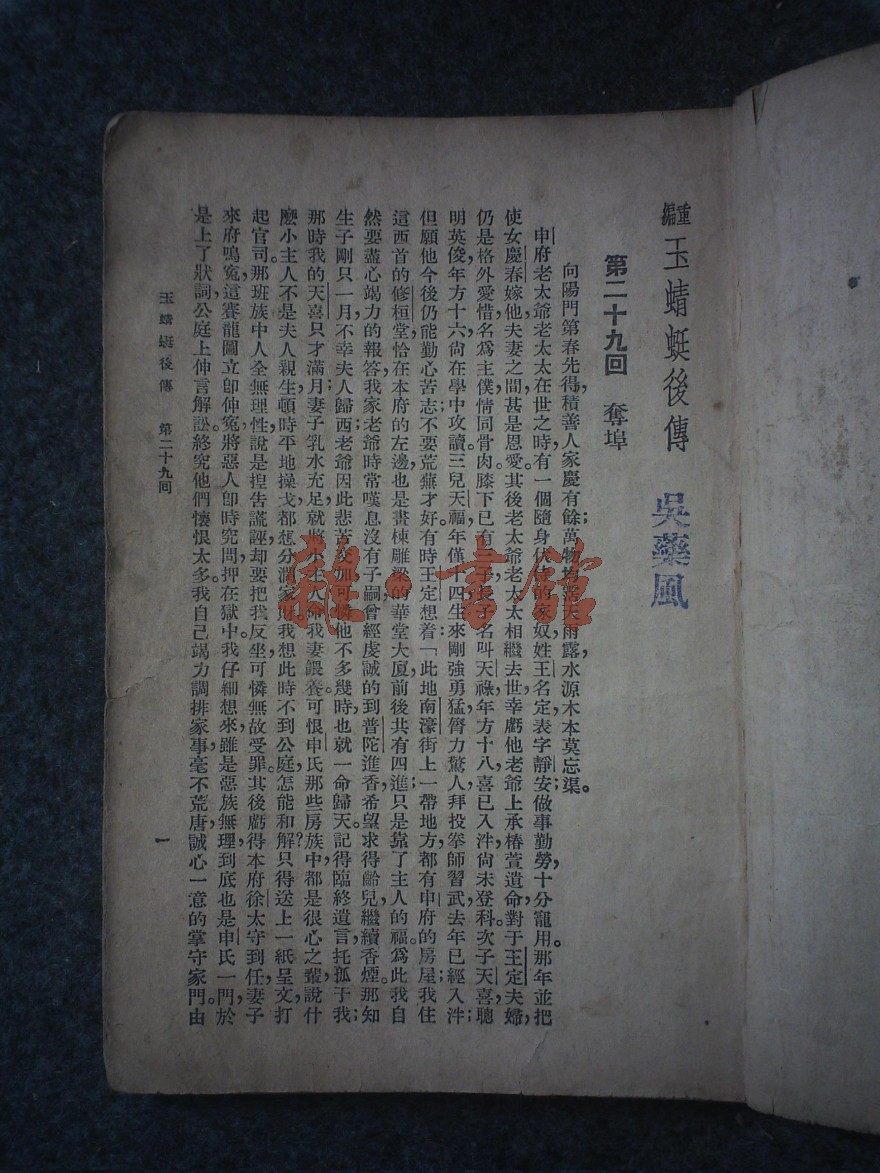 重編 玉蜻蜓後傳
吳藥風
第二十九回 奪埠
向陽門第春先得,積善人家慶有餘;萬物均需天雨露,水源木本莫忘渠。
申府老太爺老太太在世之時,有一個隨身伏侍的家奴,姓王名定表字靜安;做事勤勞,十分寵用。那年並把
使女慶春嫁他,夫妻之間,甚是恩愛。其後老太爺老太太相繼去世,幸虧他老爺上承椿萱遺命,對于王定夫婦,
仍是格外愛惜,名爲主僕,情同骨肉。膝下已有三子,長子名叫天祿,年方十八,喜已入泮,尙未登科。次子天喜,聰
明英俊,年方十六,尙在學中攻讀。三兒天福,年僅十四,生來剛強勇猛,膂力驚人,拜投拳師習武,去年已經入泮;
但願他今後仍能勤心苦志,不要荒蕪才好。有時王定想着:「此地南濠街上一帶地方,都有申府的房屋;我住
這西首的修桓堂,恰在本府的左邊,也是畫棟雕梁的華堂大厦,前後共有四進;只是靠了主人的福。爲此我自
然要盡心竭力的報答,我家老爺時常嘆息沒有子嗣,曾經虔誠的到普陀進香,希望求得齡兒繼續香煙。那知
生子剛只一月,不幸夫人歸西,老爺因此悲苦交加,可憐他不多幾時,也就一命歸天。記得臨終遺言,托孤于我;
那時我的天喜只才滿月,妻子乳水充足,就將小主人命我妻餵養。可恨申氏那些房族中,都是很心之輩,說什
麽小主人不是夫人親生,頓時平地操戈,都想分潤家財。我想此時不到公庭,怎能和解?只得送上一紙呈文,打
起官司。那班族中人全無理性,說是揑告謊誣,却要把我反坐,可憐無故受罪。其後虧得本府徐太守到任,妻子
來府鳴寃,這賽龍圖立卽伸寃,將惡人卽時究問,押在獄中。我仔細想來,雖是惡族無理,到底也是申氏一門,於
是上了狀詞,公庭上伸言解訟。終究他們懷恨太多,我自己竭力調排家事,毫不荒唐,誠心一意的掌守家門。由
玉蜻蜓後傳 第二十九回
一
雜·書館